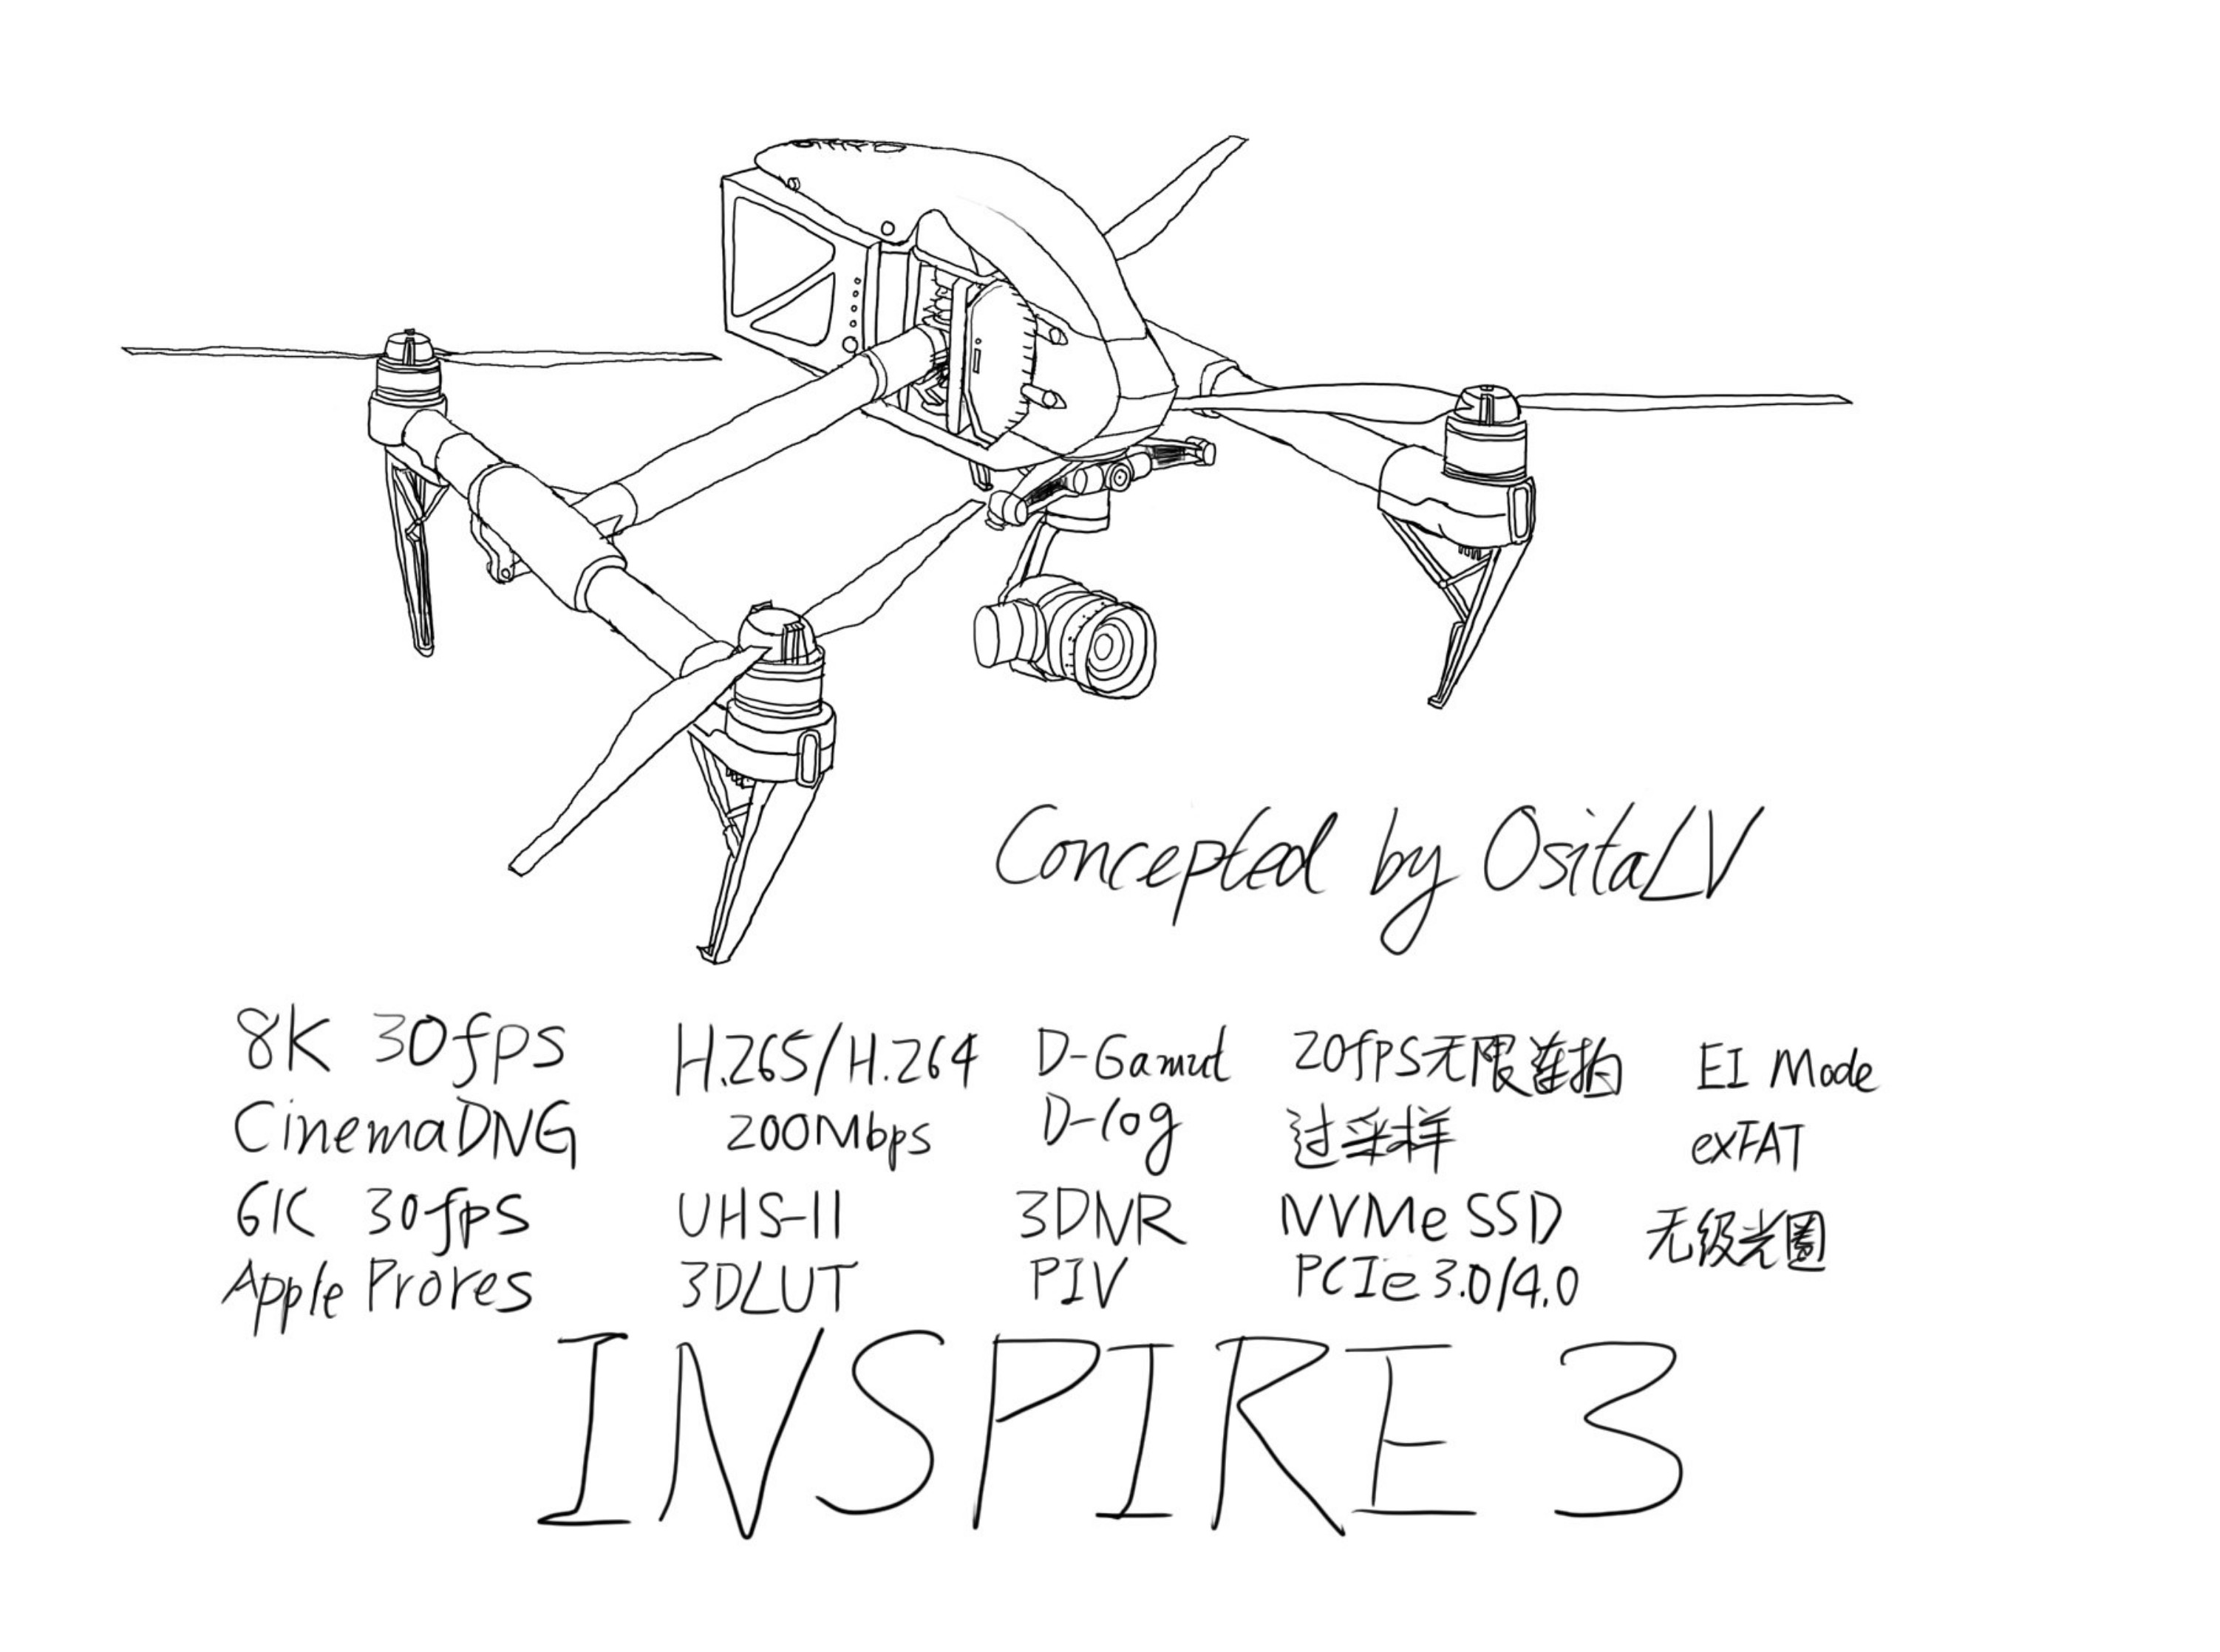 Concepted by OsitaLV
8K 30fps
CinemaDNG
6K 30fps
Apple Prores
H.265/H.264
200Mbps
UHS-II
3DLUT
D-Gamut
D-log
3DNR
PIV
20fps无限连拍
过采样
NVMe SSD
PCIe 3.0/4.0
EI Mode
exFAT
无级光圈
INSPIRE 3